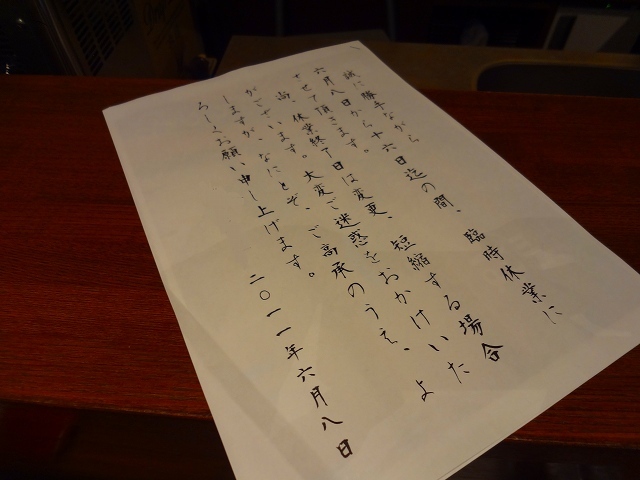 誠に勝手ながら
六月八日から十六日迄の間、臨時休業に
させて頂きます。
尚、休業終了日は変更、短縮する場合
がございます。大変ご迷惑をおかけいた
しますが、なにとぞ、ご高承のうえ、よ
ろしくお願い申し上げます。
二〇一一年六月八日